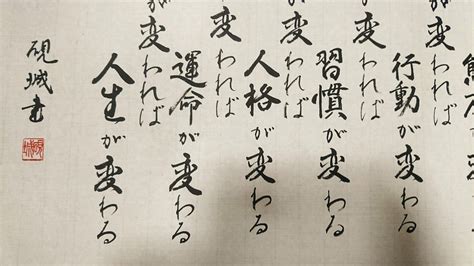 が変われば
行動が変わる
が変われば
習慣が変わる
が変われば
人格が変わる
が変われば
運命が変わる
が変われば
人生が変わる
硯城書